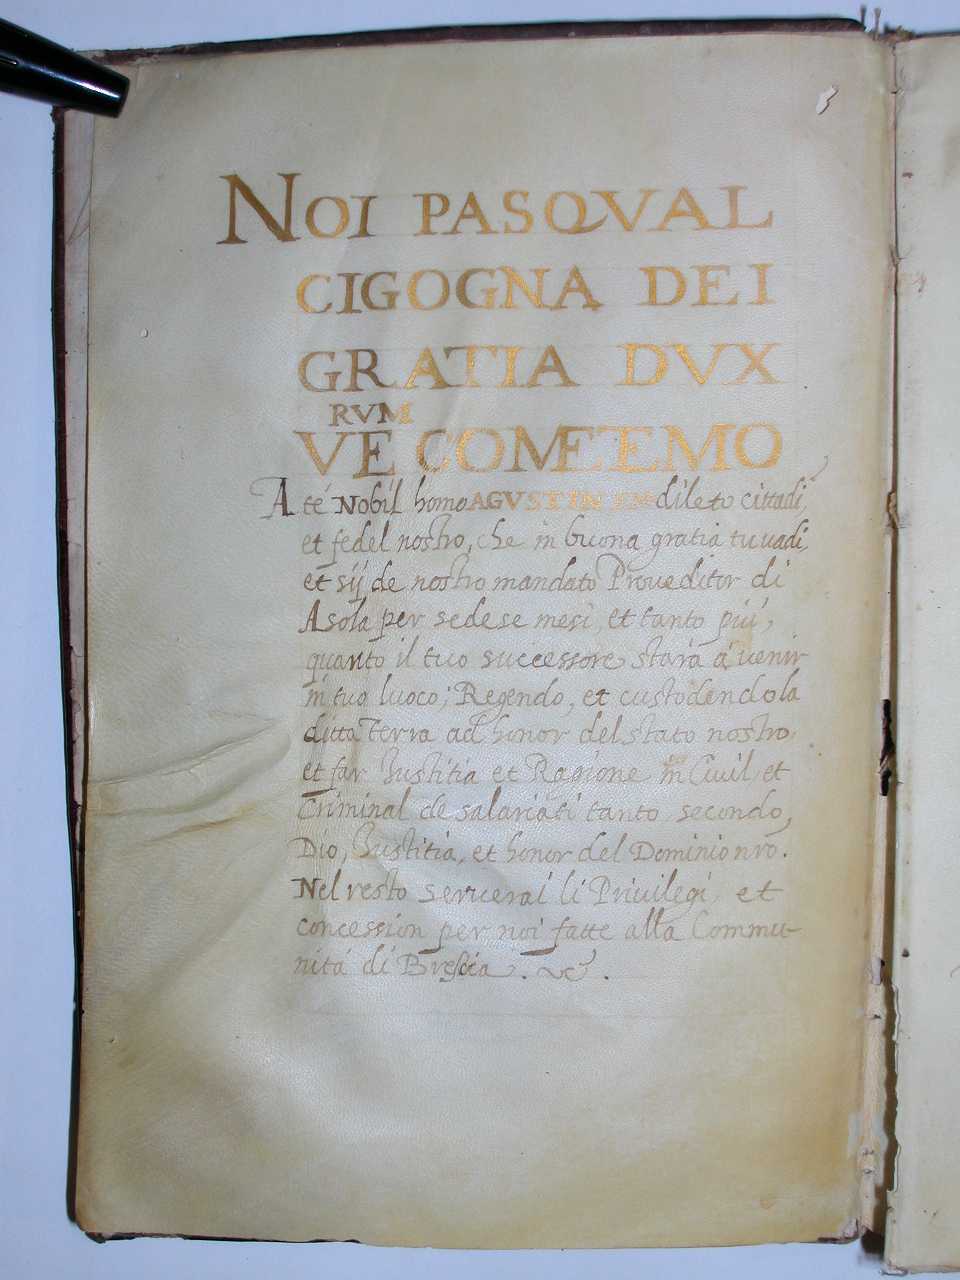 NOI PASQVAL
CIGOGNA DEI
GRATIA DVX
RVM
VE COMETEMO
A té Nobil homo AGVSTIN dileto cittadi,
et fedel nostro, che in buona gratia tu uadi,
et sij de nostro mandato Proueditor di
Asola per sedese mesi, et tanto piú,
quanto il tuo successore stará á uenir
in tuo luoco; Regendo, et custodendo la
ditta Terra ad honor del stato nostro,
et far Iustitia et Ragione in Ciuil, et
Criminal de salariati tanto secondo
Dio, Iustitia, et honor del Dominio nrõ.
Nel resto seruerai li Priuilegi, et
concession per noi fatte alla Commu-
nita di Brescia. &c.